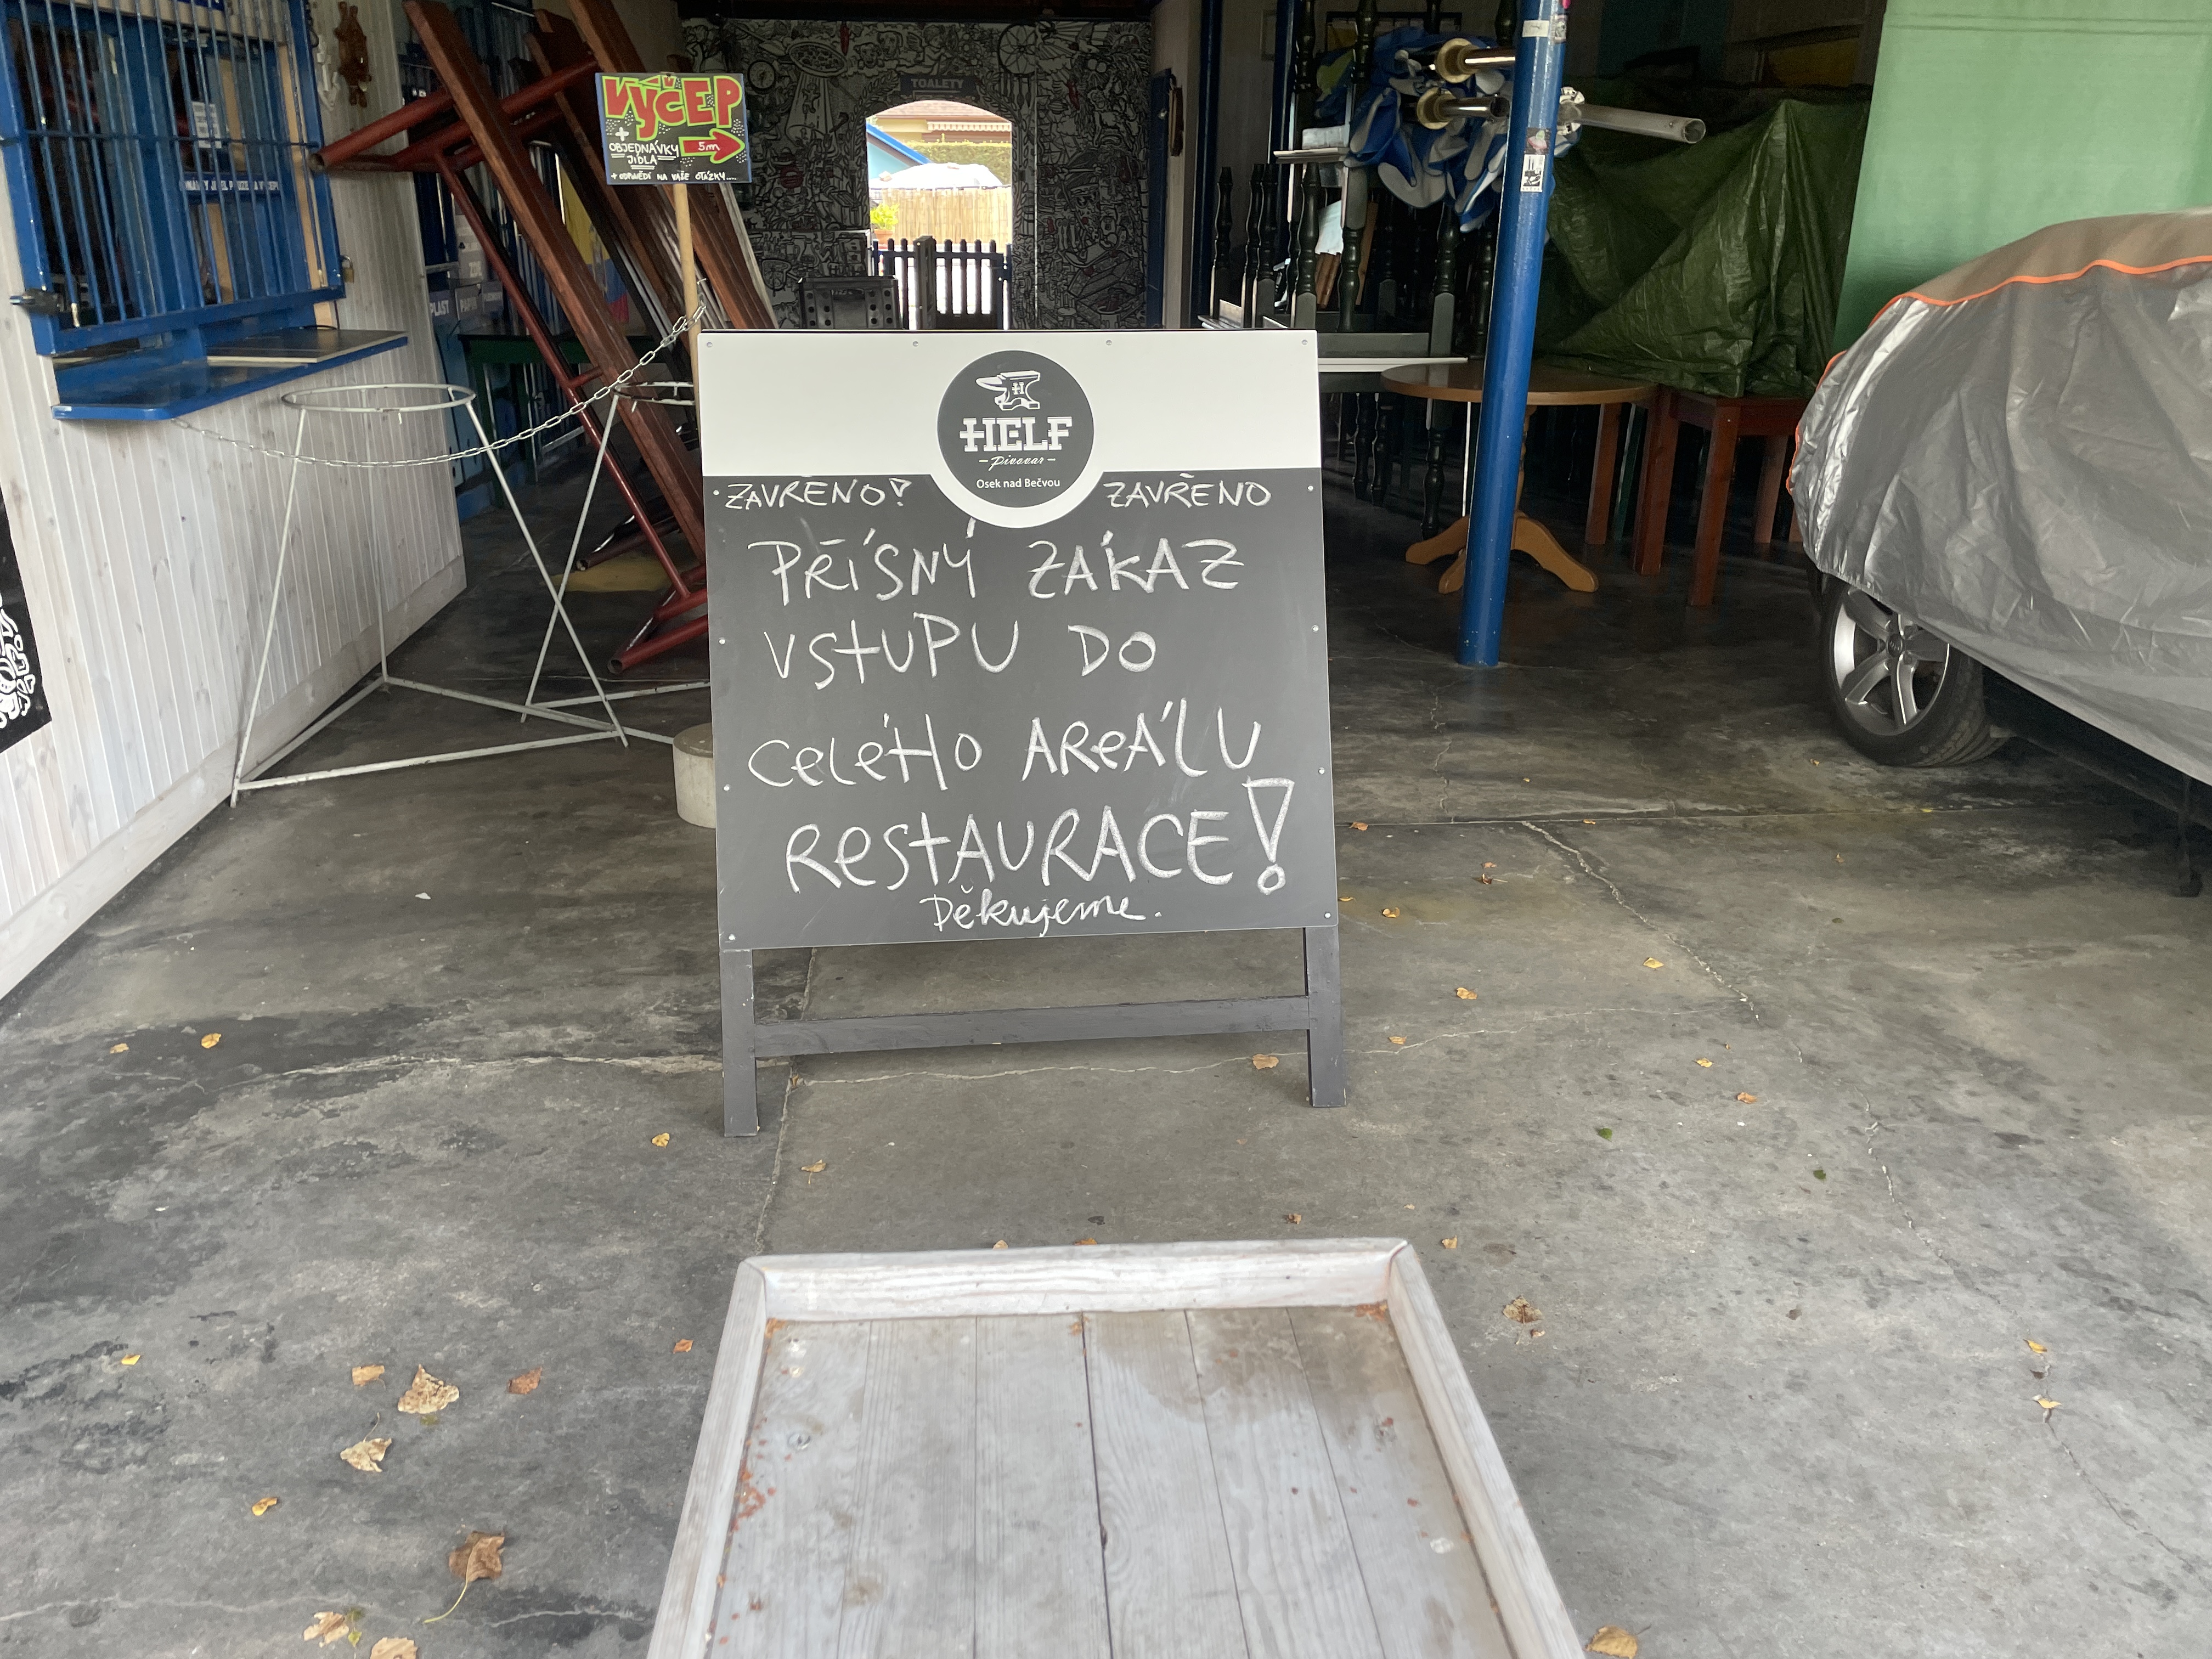 TOALETY
VÝČEP
+
OBJEDNÁVKY
JÍDLA
5m
+ ODPOVĚDI NA VAŠE OTÁZKY....
PLAST
PAPÍR
H
HELF
- pivovar -
Osek nad Bečvou
ZAVŘENO! ZAVŘENO
PŘÍSNÝ ZÁKAZ
VSTUPU DO
CELÉHO AREÁLU
RESTAURACE!
Děkujeme.